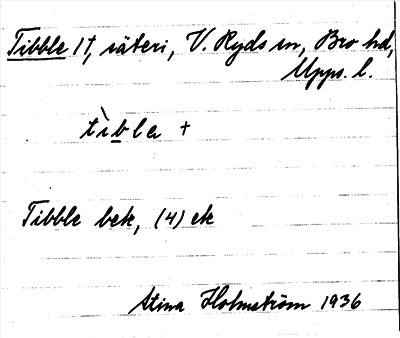 Tibble 1t, säteri, V. Ryds sn, Bro hd,
Upps. l.
tìbla +
Tibble bek, (4) ek
Stina Holmström 1936